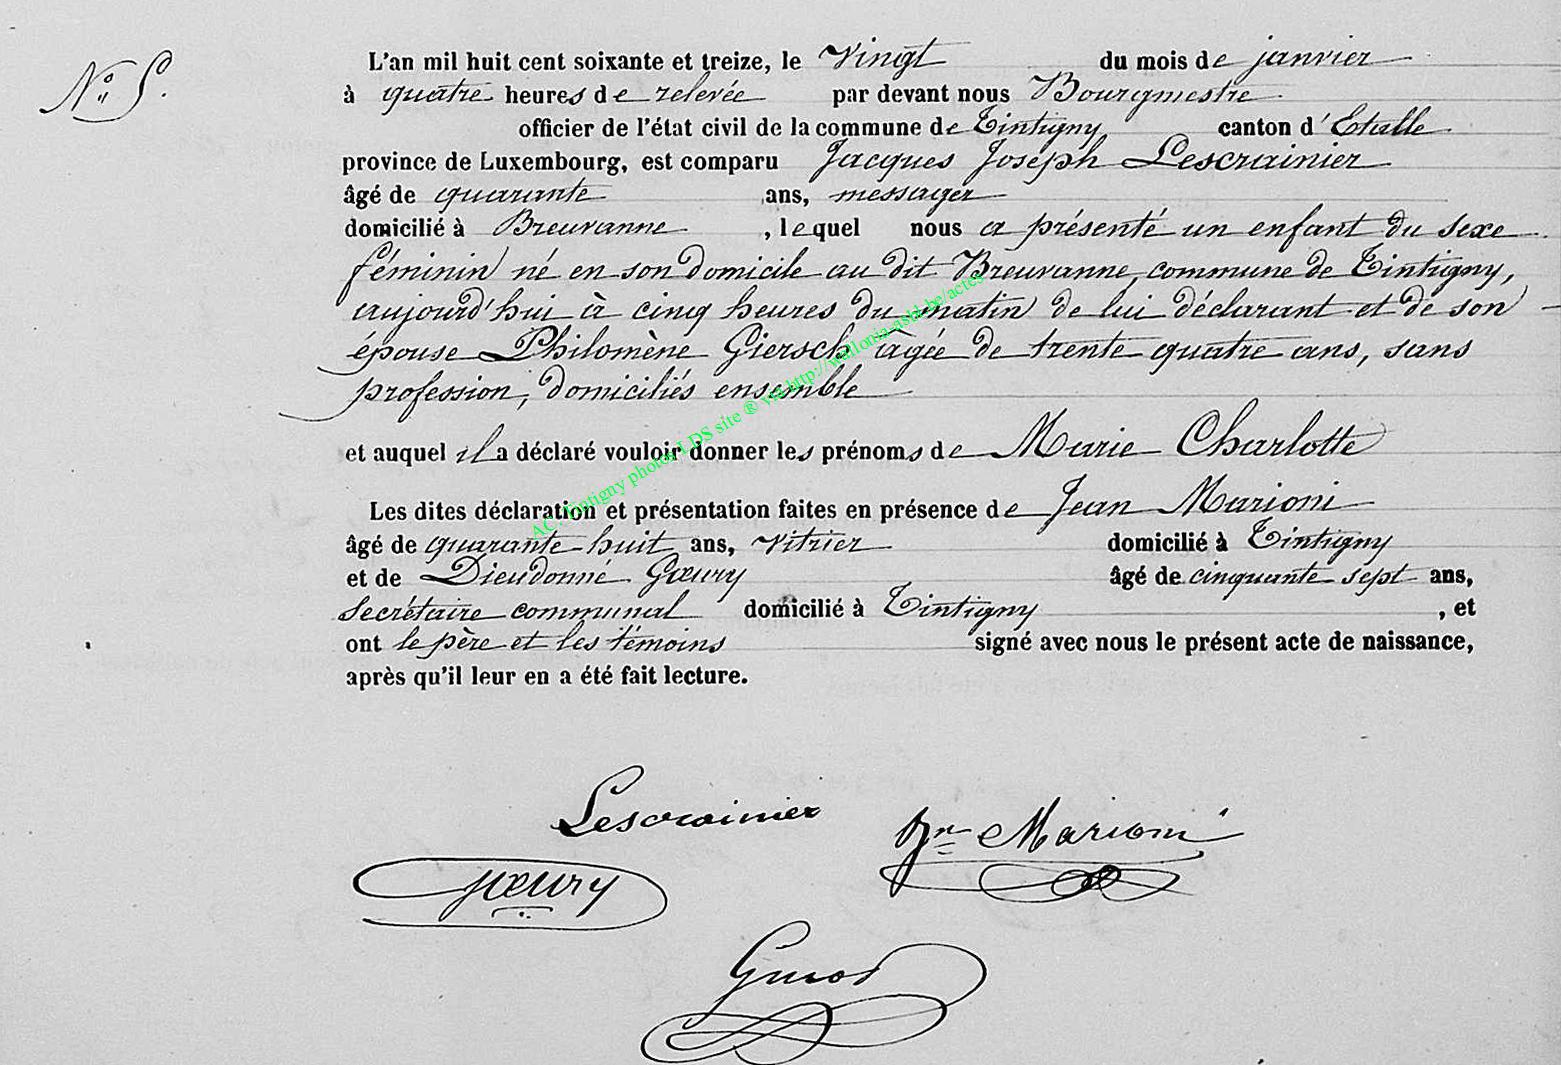 N° 5.
L'an mil huit cent soixante et treize, le vingt du mois de janvier
à quatre heures de relevée par devant nous Bourgmestre
officier de l'état civil de la commune de Tintigny canton d'Etalle
province de Luxembourg, est comparu Jacques Joseph Lescrainier
âgé de quarante ans, messager
domicilié à Breuvanne, lequel nous a présenté un enfant du sexe
féminin né en son domicile au dit Breuvanne, commune de Tintigny,
aujourd'hui à cinq heures du matin de lui déclarant et de son
épouse Philomène Giersch âgée de trente quatre ans, sans
profession, domiciliés ensemble
et auquel il a déclaré vouloir donner les prénoms de Marie Charlotte
Les dites déclaration et présentation faites en présence de Jean Marioni
âgé de quarante-huit ans, vitrier domicilié à Tintigny
et de Dieudonné Gœury âgé de cinquante sept ans,
secrétaire communal domicilié à Tintigny, et
ont le père et les témoins signé avec nous le présent acte de naissance,
après qu'il leur en a été fait lecture.
AC. Tintigny photos LDS site ® via http://wallonia-asbl.be/actes
Lescrainier
Jn Marioni
Gœury